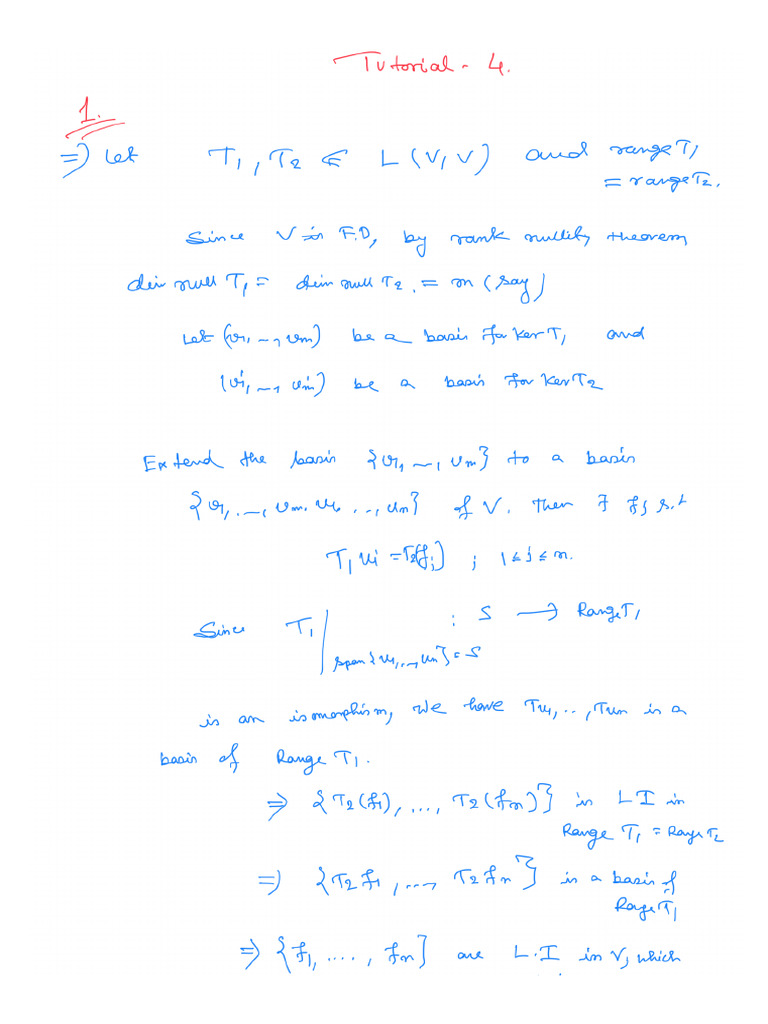 Tutorial - 4.
1.
⇒) Let T₁, T₂ ∈ L(V,V) and range T₁
= range T₂.
Since V is F.D, by rank nullity theorem
dim null T₁ = dim null T₂ = m (say)
Let (v₁, -, vₘ) be a basis for Ker T₁ and
(v₁', -, vₘ') be a basis for Ker T₂
Extend the basis {v₁, -, vₘ} to a basis
{v₁, -, vₘ, u₁, .., uₙ} of V. Then ∃ fⱼ s.t
T₁ uᵢ = T₂(fⱼ) ; 1 ≤ j ≤ n.
Since T₁|span{u₁,..,uₙ} = S : S → Range T₁
is an isomorphism, We have Tu₁, .., Tuₙ is a
basis of Range T₁.
⇒ {T₂(f₁), ..., T₂(fₙ)} is LI in
Range T₁ = Range T₂
⇒) {T₂f₁, ..., T₂fₙ} is a basis of
Range T₁
⇒ {f₁, ...., fₙ} are L.I in V, which